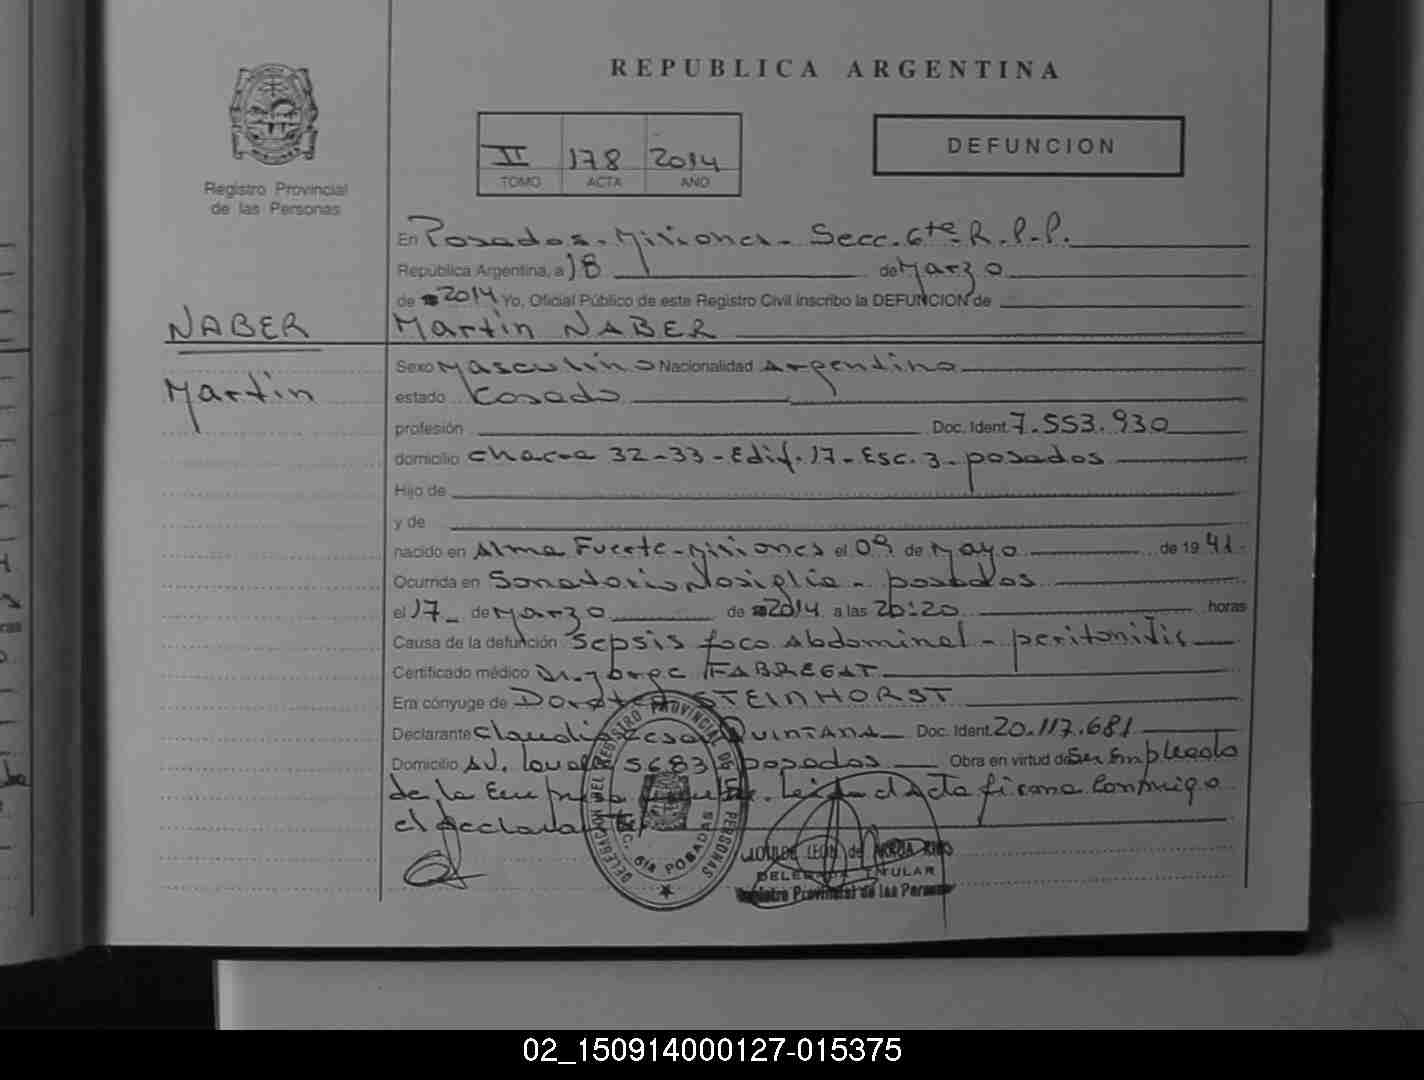 REPUBLICA ARGENTINA
II 178 2014
TOMO ACTA AÑO
DEFUNCION
Registro Provincial
de las Personas
En Posadas - Misiones - Secc. 6te. R.P.P.
República Argentina, a 18 de Marzo
de 2014 Yo, Oficial Público de este Registro Civil inscribo la DEFUNCION de
NABER
Martin
Martin NABER
Sexo Masculino Nacionalidad Argentino
estado Casado
profesión Doc. Ident. 7.553.930
domicilio chacra 32-33 - Edif. 17 - Esc. 3 - posadas
Hijo de
y de
nacido en Alma Fuerte - Misiones el 09 de Mayo de 19 41.
Ocurrida en Sanatorio Nosiglia - posadas
el 17 - de Marzo de 2014 a las 20:20 horas
Causa de la defunción Sepsis foco abdominal - peritonitis
Certificado médico Dr. Jorge FABREGAT
Era cónyuge de STEINHORST
Declarante Claudio Cesar QUINTANA Doc. Ident. 20.117.681
Domicilio AV. 5683 posadas Obra en virtud de Ser Empleado
de la Leida el Acta firma Conmigo
el declarante
DELEGACION DEL REGISTRO PROVINCIAL DE LAS PERSONAS
SEC. 6ta POSADAS
LEON de
DELEGADA TITULAR
Registro Provincial de las Personas
02_150914000127-015375